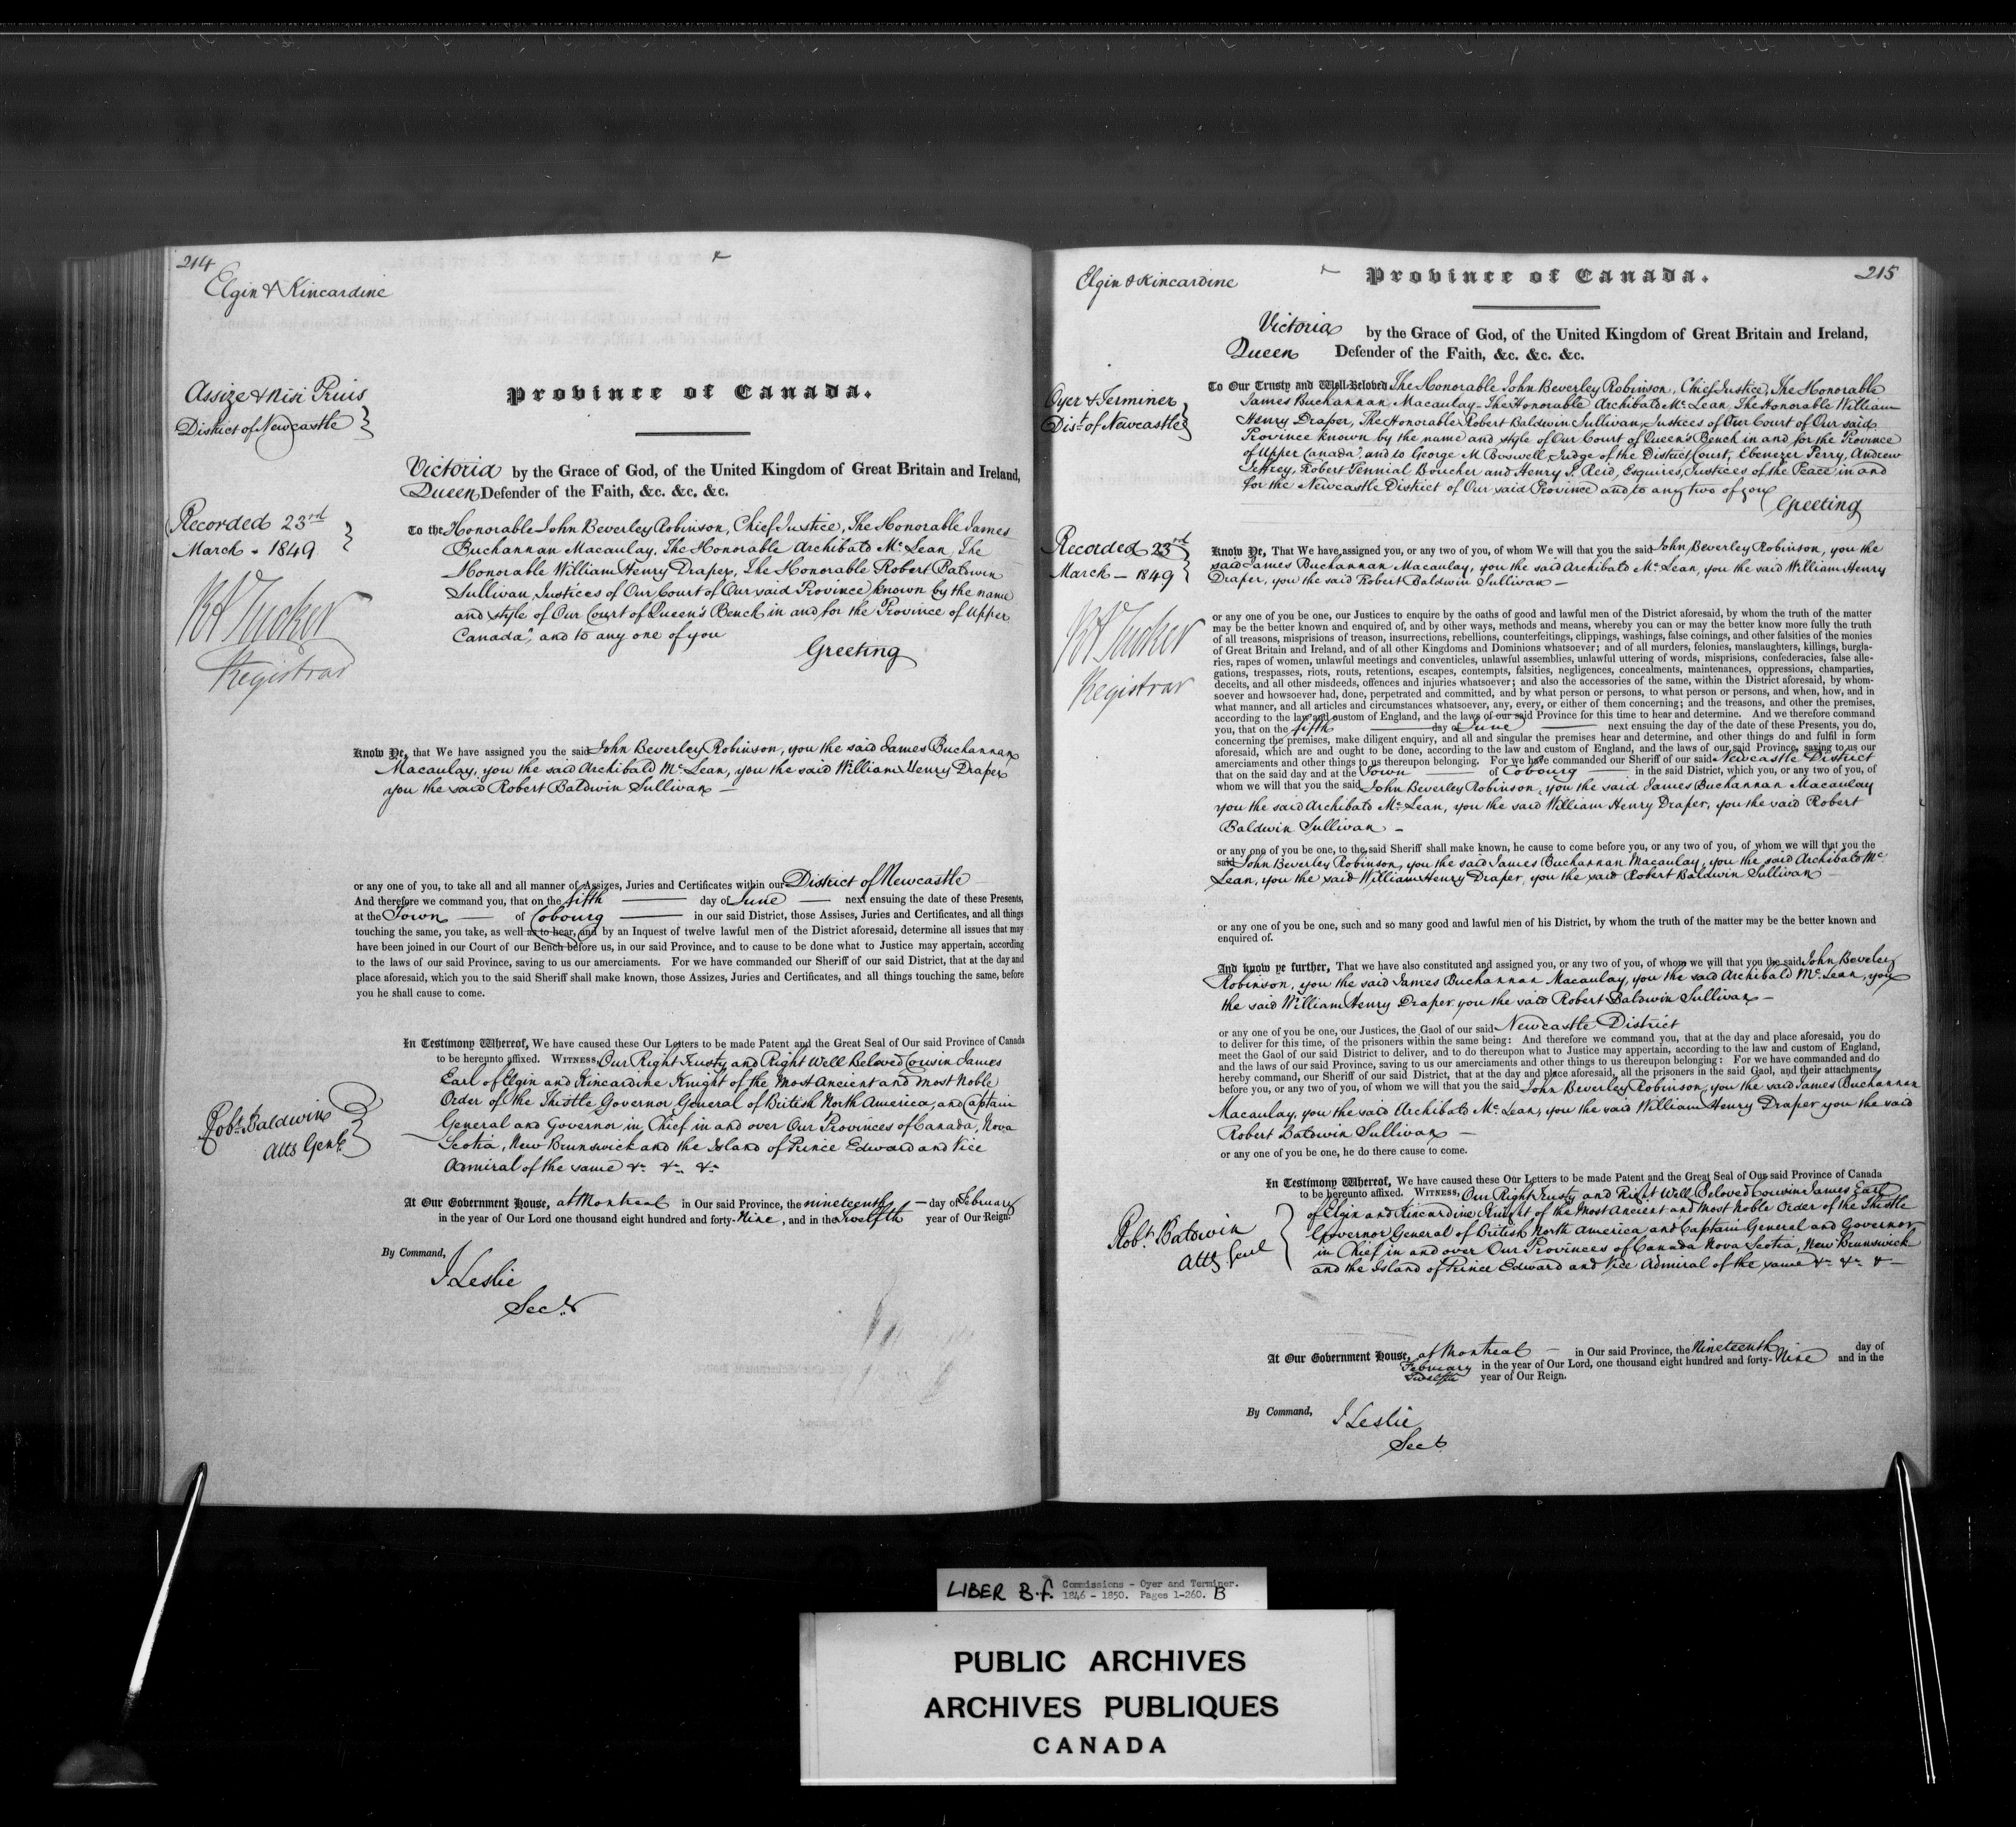 214
Elgin & Kincardine
Assize & Nisi Prius
District of Newcastle
Recorded 23rd
March - 1849
RA Tucker
Registrar
Province of Canada.
Victoria by the Grace of God, of the United Kingdom of Great Britain and Ireland,
Queen Defender of the Faith, &c. &c. &c.
To the Honorable John Beverley Robinson, Chief Justice, The Honorable James
Buchannan Macaulay, The Honorable Archibald Mc Lean, The
Honorable William Henry Draper, The Honorable Robert Baldwin
Sullivan, Justices of Our Court of Our said Province known by the name
and style of Our Court of Queen's Bench in and for the Province of Upper
Canada", and to any one of you
Greeting
Know Ye, that We have assigned you the said John Beverley Robinson, you the said James Buchannan
Macaulay, you the said Archibald Mc Lean, you the said William Henry Draper
you the said Robert Baldwin Sullivan —
or any one of you, to take all and all manner of Assizes, Juries and Certificates within our District of Newcastle
And therefore we command you, that on the fifth — day of June — next ensuing the date of these Presents,
at the Town — of Cobourg — in our said District, those Assises, Juries and Certificates, and all things
touching the same, you take, as well as to hear, and by an Inquest of twelve lawful men of the District aforesaid, determine all issues that may
have been joined in our Court of our Bench before us, in our said Province, and to cause to be done what to Justice may appertain, according
to the laws of our said Province, saving to us our amerciaments. For we have commanded our Sheriff of our said District, that at the day and
place aforesaid, which you to the said Sheriff shall make known, those Assizes, Juries and Certificates, and all things touching the same, before
you he shall cause to come.
In Testimony Whereof, We have caused these Our Letters to be made Patent and the Great Seal of Our said Province of Canada
to be hereunto affixed. WITNESS, Our Right Trusty and Right Well Beloved Cousin James
Earl of Elgin and Kincardine Knight of the Most Ancient and Most Noble
Order of the Thistle Governor General of British North America, and Captain
General and Governor in Chief in and over Our Provinces of Canada, Nova
Scotia, New Brunswick and the Island of Prince Edward and Vice
Admiral of the same &c &c &c
Robt. Baldwin
Atty Genl.
At Our Government House, at Montreal in Our said Province, the nineteenth — day of February
in the year of Our Lord one thousand eight hundred and forty-Nine, and in the Twelfth year of Our Reign.
By Command,
J Leslie
Secy
215
Elgin & Kincardine
Province of Canada.
Oyer & Terminer
Dist. of Newcastle
Recorded 23rd
March - 1849
RA Tucker
Registrar
Victoria by the Grace of God, of the United Kingdom of Great Britain and Ireland,
Queen Defender of the Faith, &c. &c. &c.
To Our Trusty and Well-Beloved The Honorable John Beverley Robinson, Chief Justice, The Honorable
James Buchannan Macaulay - The Honorable Archibald Mc Lean, The Honorable William
Henry Draper, The Honorable Robert Baldwin Sullivan, Justices of Our Court of Our said
Province known by the name and style of Our Court of Queen's Bench in and for the Province
of Upper Canada", and to George M Boswell Judge of the District Court, Ebenezer Perry, Andrew
Jeffrey, Robert Pennial Boucher and Henry S. Reid, Esquires, Justices of the Peace in and
for the Newcastle District of Our said Province and to any two of you
Greeting
Know Ye, That We have assigned you, or any two of you, of whom We will that you the said John Beverley Robinson, you the
said James Buchannan Macaulay, you the said Archibald Mc Lean, you the said William Henry
Draper, you the said Robert Baldwin Sullivan —
or any one of you be one, our Justices to enquire by the oaths of good and lawful men of the District aforesaid, by whom the truth of the matter
may be the better known and enquired of, and by other ways, methods and means, whereby you can or may the better know more fully the truth
of all treasons, misprisions of treason, insurrections, rebellions, counterfeitings, clippings, washings, false coinings, and other falsities of the monies
of Great Britain and Ireland, and of all other Kingdoms and Dominions whatsoever; and of all murders, felonies, manslaughters, killings, burgla-
ries, rapes of women, unlawful meetings and conventicles, unlawful assemblies, unlawful uttering of words, misprisions, confederacies, false alle-
gations, trespasses, riots, routs, retentions, escapes, contempts, falsities, negligences, concealments, maintenances, oppressions, champarties,
deceits, and all other misdeeds, offences and injuries whatsoever; and also the accessories of the same, within the District aforesaid, by whom-
soever and howsoever had, done, perpetrated and committed, and by what person or persons, to what person or persons, and when, how, and in
what manner, and all articles and circumstances whatsoever, any, every, or either of them concerning; and the treasons, and other the premises,
according to the law and custom of England, and the laws of our said Province for this time to hear and determine. And we therefore command
you, that on the fifth — day of June — next ensuing the day of the date of these Presents, you do,
concerning the premises, make diligent enquiry, and all and singular the premises hear and determine, and other things do and fulfil in form
aforesaid, which are and ought to be done, according to the law and custom of England, and the laws of our said Province, saving to us our
amerciaments and other things to us thereupon belonging. For we have commanded our Sheriff of our said Newcastle District
that on the said day and at the Town — of Cobourg — in the said District, which you, or any two of you, of
whom we will that you the said John Beverley Robinson, you the said James Buchannan Macaulay
you the said Archibald Mc Lean, you the said William Henry Draper, you the said Robert
Baldwin Sullivan —
or any one of you be one, to the said Sheriff shall make known, he cause to come before you, or any two of you, of whom we will that you the
said John Beverley Robinson, you the said James Buchannan Macaulay, you the said Archibald Mc
Lean, you the said William Henry Draper, you the said Robert Baldwin Sullivan —
or any one of you be one, such and so many good and lawful men of his District, by whom the truth of the matter may be the better known and
enquired of.
And know ye further, That we have also constituted and assigned you, or any two of you, of whom we will that you the said John Beverley
Robinson, you the said James Buchannan Macaulay, you the said Archibald Mc Lean, you
the said William Henry Draper, you the said Robert Baldwin Sullivan —
or any one of you be one, our Justices, the Gaol of our said Newcastle District
to deliver for this time, of the prisoners within the same being: And therefore we command you, that at the day and place aforesaid, you do
meet the Gaol of our said District to deliver, and to do thereupon what to Justice may appertain, according to the law and custom of England,
and the laws of our said Province, saving to us our amerciaments and other things to us thereupon belonging: For we have commanded and do
hereby command, our Sheriff of our said District, that at the day and place aforesaid, all the prisoners in the said Gaol, and their attachments,
before you, or any two of you, of whom we will that you the said John Beverley Robinson, you the said James Buchannan
Macaulay, you the said Archibald Mc Lean, you the said William Henry Draper you the said
Robert Baldwin Sullivan —
or any one of you be one, he do there cause to come.
In Testimony Whereof, We have caused these Our Letters to be made Patent and the Great Seal of Our said Province of Canada
to be hereunto affixed. WITNESS, Our Right Trusty and Right Well Beloved Cousin James Earl
of Elgin and Kincardine Knight of the Most Ancient and Most Noble Order of the Thistle
Governor General of British North America and Captain General and Governor
in Chief in and over Our Provinces of Canada Nova Scotia, New Brunswick
and the Island of Prince Edward and Vice Admiral of the same &c &c &c —
Robt. Baldwin
Atty. Genl
At Our Government House, at Montreal — in Our said Province, the Nineteenth day of
February in the year of Our Lord, one thousand eight hundred and forty-Nine and in the
Twelfth year of Our Reign.
By Command,
J Leslie
Secy
LIBER B.f. Commissions - Oyer and Terminer.
1846 - 1850. Pages 1-260. B
PUBLIC ARCHIVES
ARCHIVES PUBLIQUES
CANADA